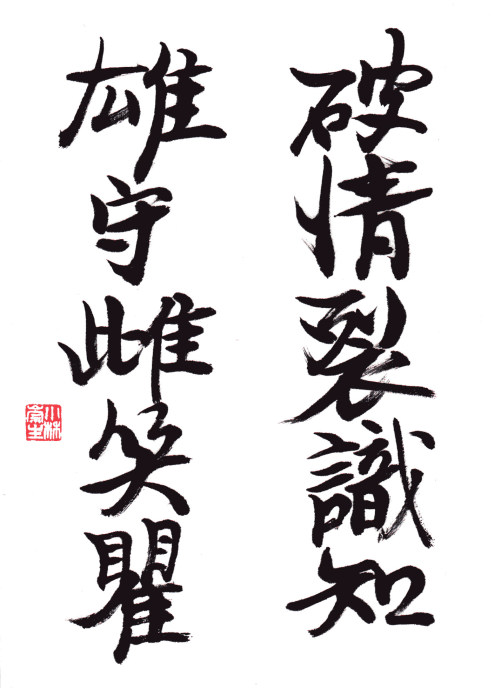 破情裂識知
雄守雌笑瞿
小林